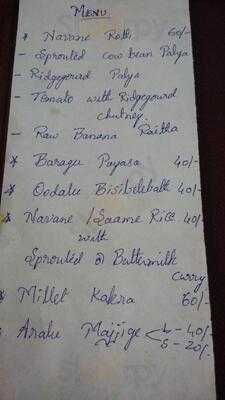 MENU
* Navane Rotti 60/-
- Sprouted cow bean Palya
- Ridgegourd Palya
- Tomato with Ridgegourd
chutney.
- Raw Banana Raitha
* Baragu Payasa 40/-
* Oodalu Bisibelebath 40/-
* Navane / Saame Rice 40/-
with
Sprouted @ Buttermilk
curry
* Millet Kakra 60/-
Aralu Majjige < L - 40/-
S - 20/-